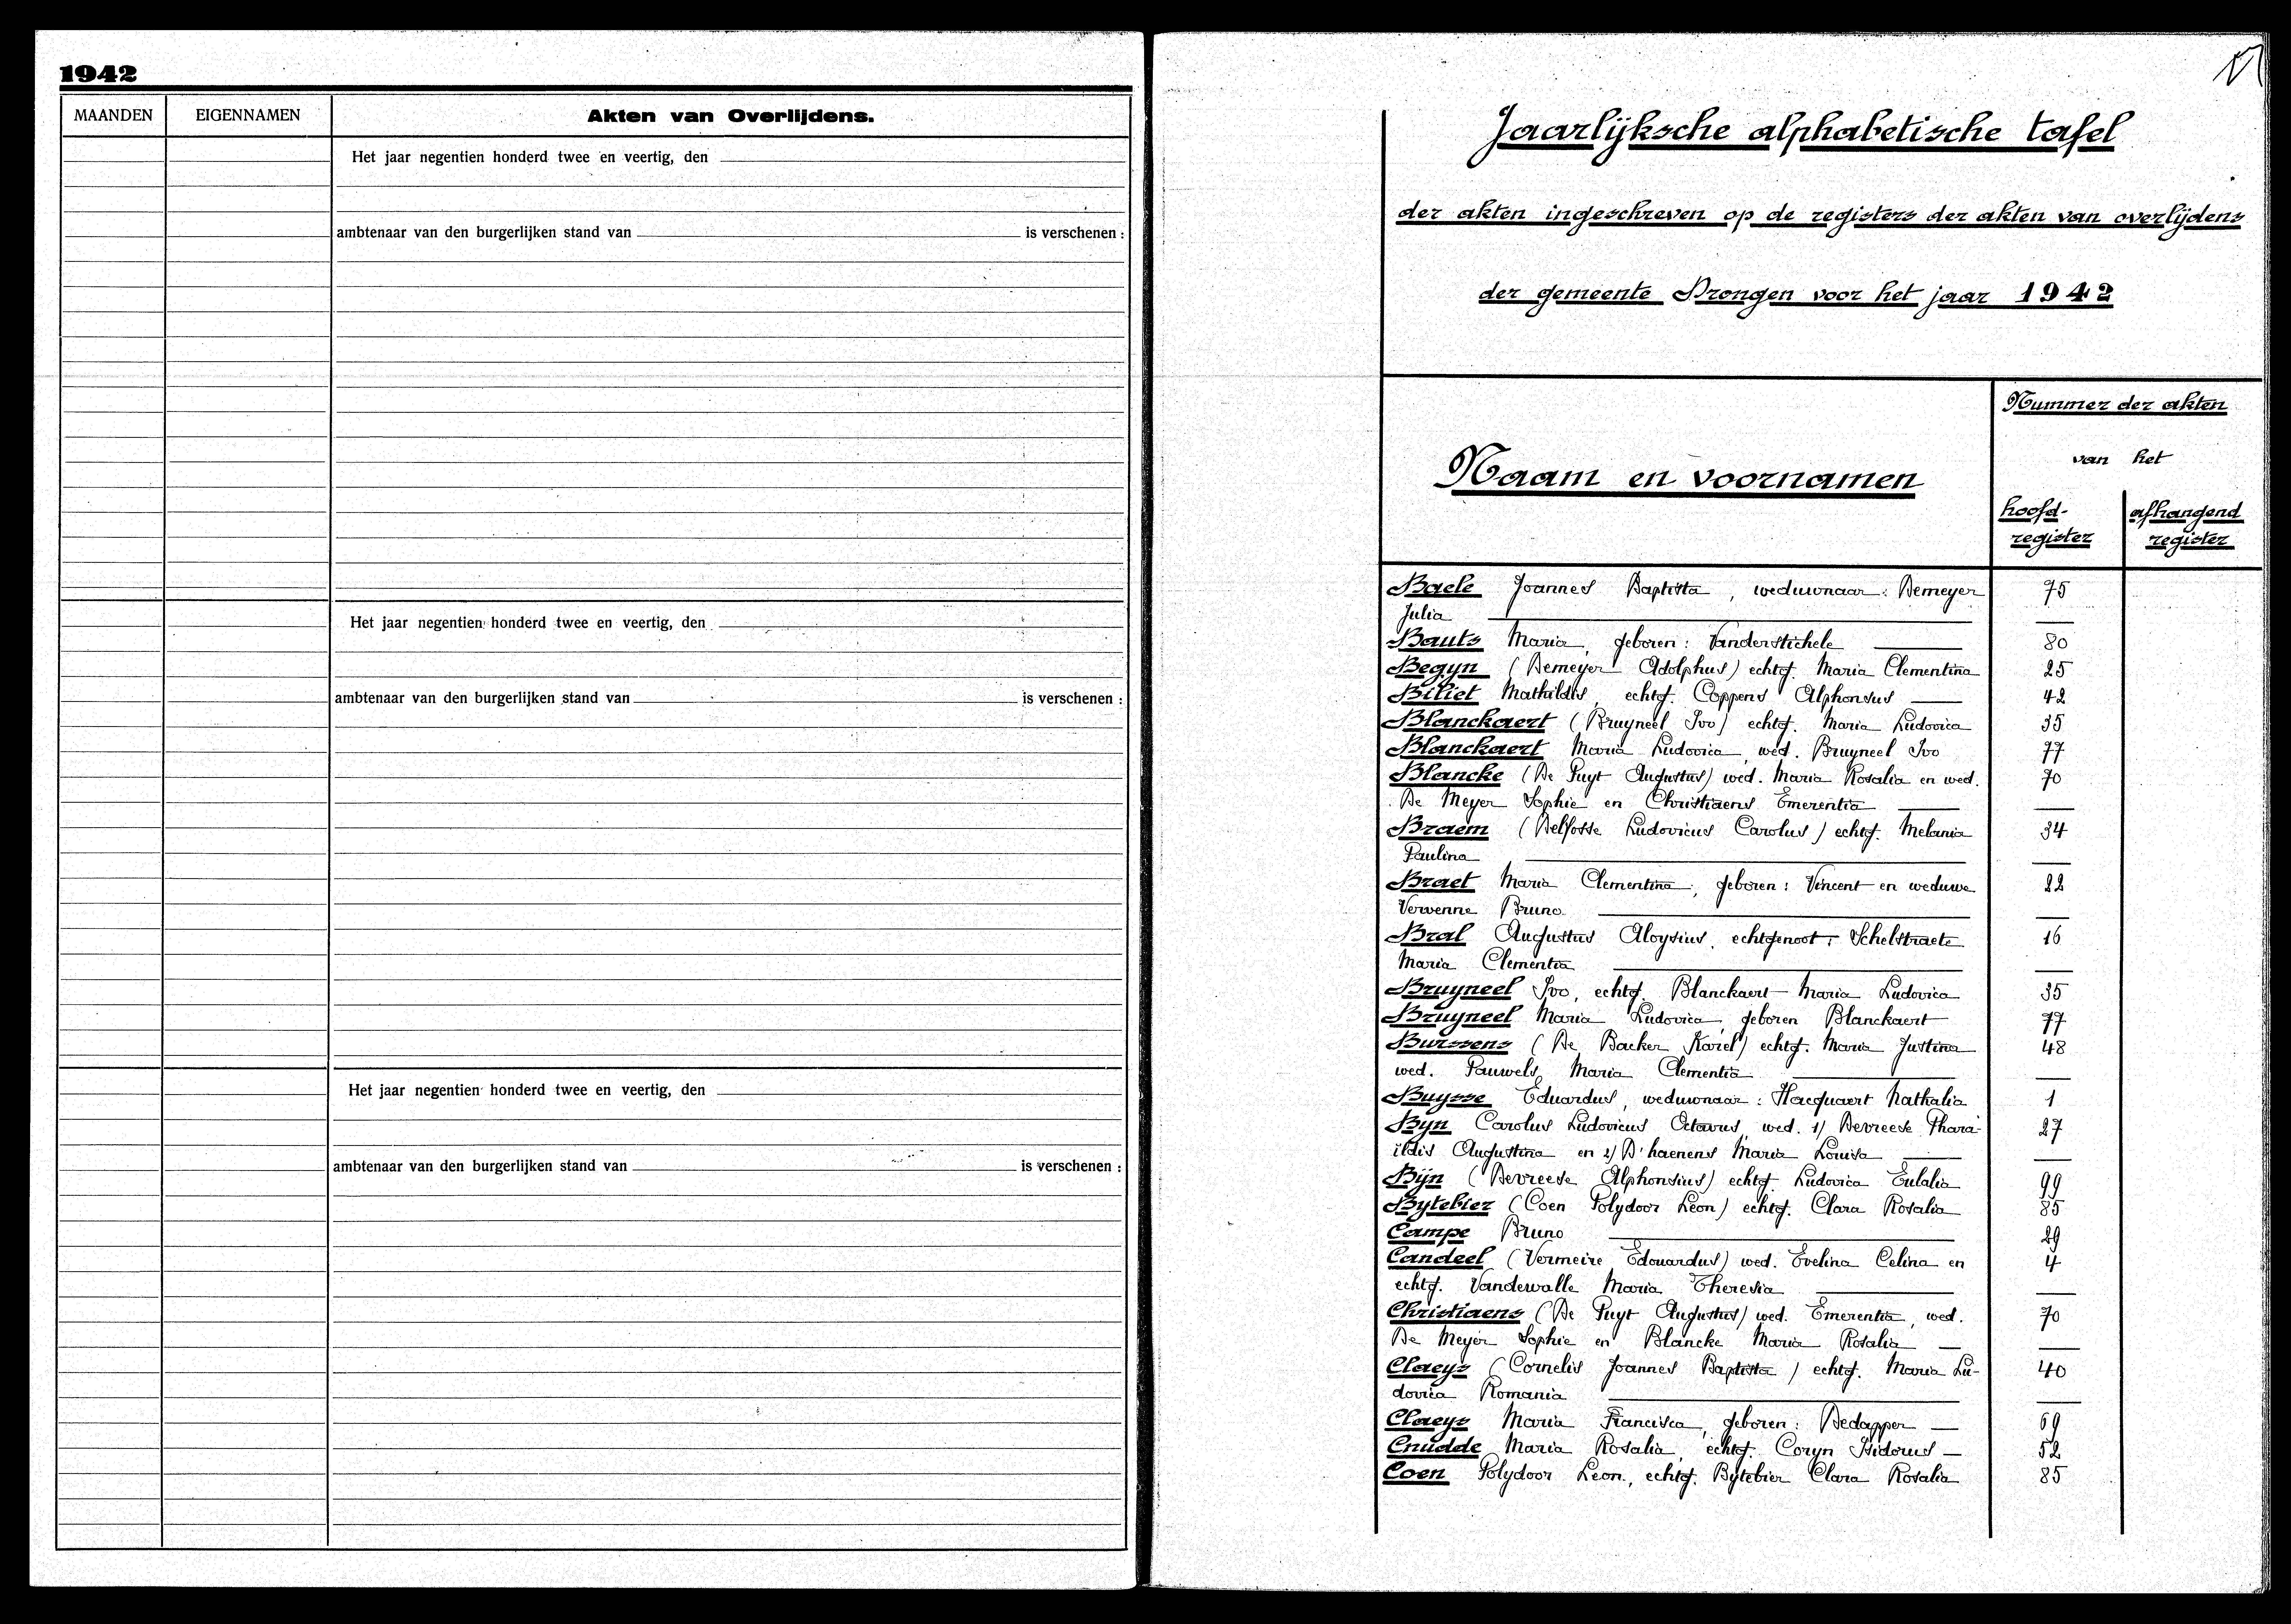 1942
MAANDEN EIGENNAMEN Akten van Overlijdens.
Het jaar negentien honderd twee en veertig, den
ambtenaar van den burgerlijken stand van is verschenen :
Het jaar negentien honderd twee en veertig, den
ambtenaar van den burgerlijken stand van is verschenen :
Het jaar negentien honderd twee en veertig, den
ambtenaar van den burgerlijken stand van is verschenen :
Jaarlijksche alphabetische tafel
der akten ingeschreven op de registers der akten van overlijdens
der gemeente Drongen voor het jaar 1942
Nummer der akten
van het
Naam en voornamen
hoofd-register
afhangend register
Baele Joannes Baptista, weduwnaar: Demeyer 75
Julia
Bauts Maria, geboren: Vanderstichele 80
Begyn (Demeyer Adolphus) echtg. Maria Clementina 25
Biliet Mathildis, echtg. Coppens Alphonsus 42
Blanckaert (Bruyneel Ivo) echtg. Maria Ludovica 35
Blanckaert Maria Ludovica, wed. Bruyneel Ivo 77
Blancke (De Puyt Augustus) wed. Maria Rosalia en wed. 70
De Meyer Sophie en Christiaens Emerentia
Braem (Delfosse Ludovicus Carolus) echtg. Melania 34
Paulina
Braet Maria Clementina, geboren: Vincent en weduwe 22
Vervenne Bruno
Bral Augustus Aloysius, echtgenoot: Schelstraete 16
Maria Clementia
Bruyneel Ivo, echtg. Blanckaert Maria Ludovica 35
Bruyneel Maria Ludovica, geboren Blanckaert 77
Burssens (De Backer Karel) echtg. Maria Justina 48
wed. Pauwels Maria Clementia
Buysse Eduardus, weduwnaar: Hacquaert Nathalia 1
Byn Carolus Ludovicus Octavus, wed. 1/ Devreese Phara- 27
ildis Augustina en 2/ D'haenens Maria Louisa
Bijn (Devreese Alphonsius) echtg. Ludovica Eulalia 99
Bytebier (Coen Polydoor Leon) echtg. Clara Rosalia 85
Campe Bruno 29
Candeel (Vermeire Edouardus) wed. Evelina Celina en 4
echtg. Vandewalle Maria Theresia
Christiaens (De Puyt Augustus) wed. Emerentia, wed. 70
De Meyer Sophie en Blancke Maria Rosalia
Claeys (Cornelis Joannes Baptista) echtg. Maria Lu- 40
dovica Romania
Claeys Maria Francisca, geboren: Dedapper 69
Cnudde Maria Rosalia, echtg. Coryn Isidorus 52
Coen Polydoor Leon, echtg. Bytebier Clara Rosalia 85